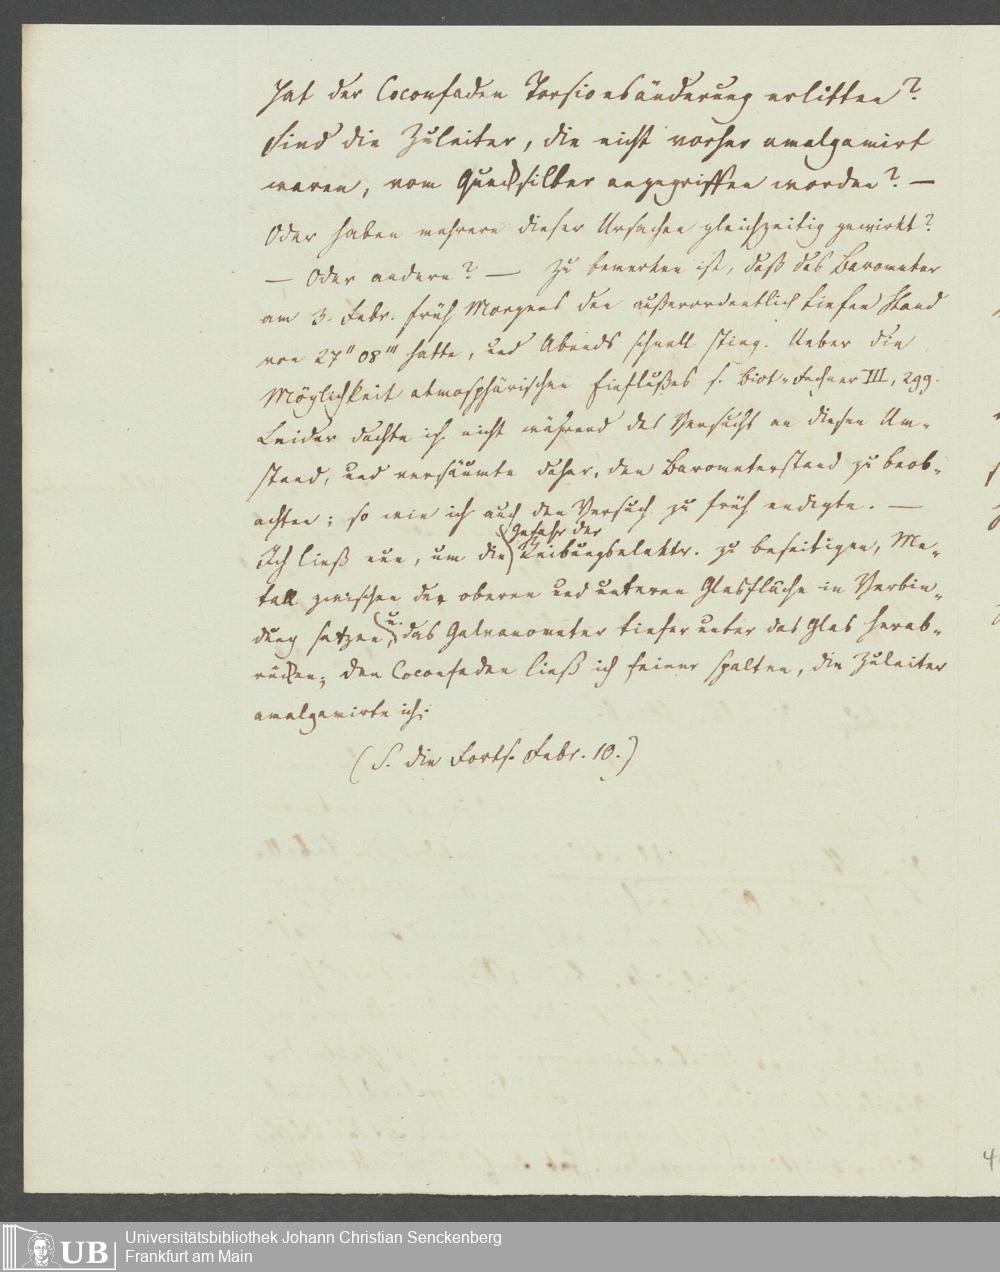 Hat der Coconfaden Torsionsänderung erlitten?
Sind die Zuleiter, die nicht vorher amalgamirt
waren, vom Quecksilber angegriffen worden? —
Oder haben mehrere dieser Ursachen gleichzeitig gewirkt?
— Oder andere? — Zu bemerken ist, daß das Barometer
am 3. Febr. früh Morgens den außerordentlich tiefen Stand
von 27" 08"' hatte, und Abends schnell stieg. Ueber die
Möglichkeit atmosphärischen Einflußes s. Biot-Fechner III, 299.
Leider dachte ich nicht während des Versuchs an diesen Um-
stand, und versäumte daher, den Barometerstand zu beob-
achten; so wie ich auch den Versuch zu früh endigte. —
Gefahr der
Ich ließ nun, um die Reibungselektr. zu beseitigen, Me-
tall zwischen der oberen und unteren Glasfläche in Verbin-
dung setzen u. das Galvanometer tiefer unter das Glas herab-
rücken; den Coconfaden ließ ich feiner spalten, die Zuleiter
amalgamirte ich.
(S. die Forts. Febr. 10.)
UB
Universitätsbibliothek Johann Christian Senckenberg
Frankfurt am Main